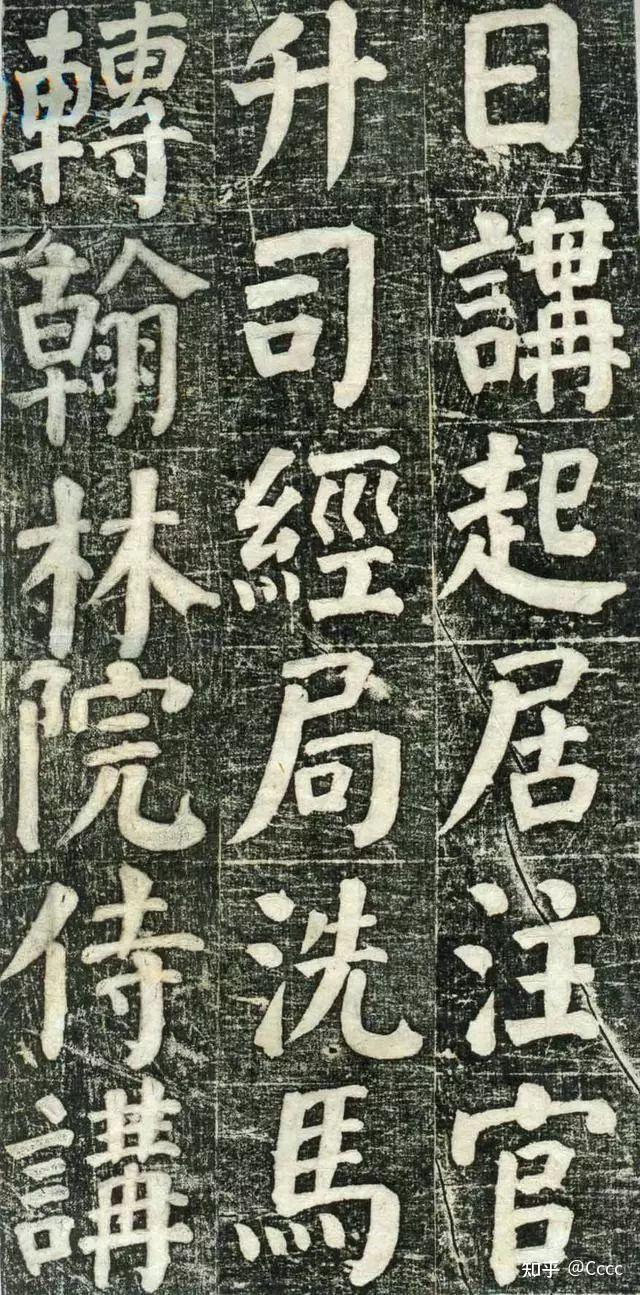 日講起居注官
升司經局洗馬
轉翰林院侍講
知乎 @Cccc